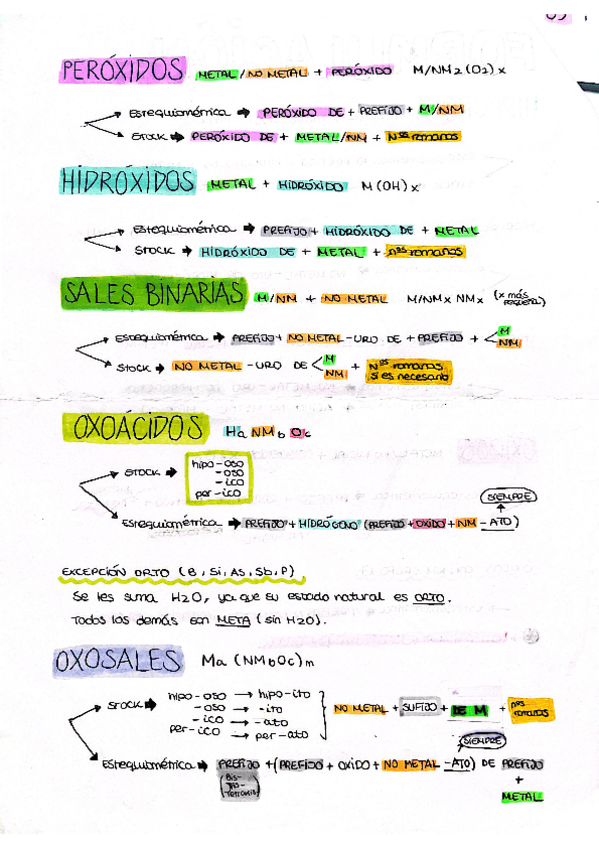 09
PERÓXIDOS METAL/NO METAL + PERÓXIDO M/NM2(O2)x
Estequiométrica → PERÓXIDO DE + PREFIJO + M/NM
STOCK → PERÓXIDO DE + METAL/NM + Nºs romanos
HIDRÓXIDOS METAL + HIDRÓXIDO M(OH)x
Estequiométrica → PREFIJO + HIDRÓXIDO DE + METAL
STOCK → HIDRÓXIDO DE + METAL + nºs romanos
SALES BINARIAS M/NM + NO METAL M/NMx NMx (x más pequeña)
Estequiométrica → PREFIJO + NO METAL -URO DE + PREFIJO + M NM
STOCK → NO METAL -URO DE M NM + Nºs romanos si es necesario
OXOÁCIDOS Ha NMb Oc
STOCK → hipo-oso
-oso
-ico
per-ico
SIEMPRE
Estequiométrica → PREFIJO + HIDRÓGENO (PREFIJO + OXIDO + NM -ATO)
EXCEPCIÓN ORTO (B, Si, As, Sb, P)
Se les suma H2O, ya que su estado natural es ORTO.
Todos los demás son META (sin H2O).
OXOSALES Ma(NMbOc)m
STOCK → hipo-oso → hipo-ito
-oso → -ito
-ico → -ato
per-ico → per-ato
NO METAL + SUFIJO + DE M + nºs romanos
SIEMPRE
Estequiométrica → PREFIJO + (PREFIJO + OXIDO + NO METAL -ATO) DE PREFIJO
Bis-
Tris-
+
METAL